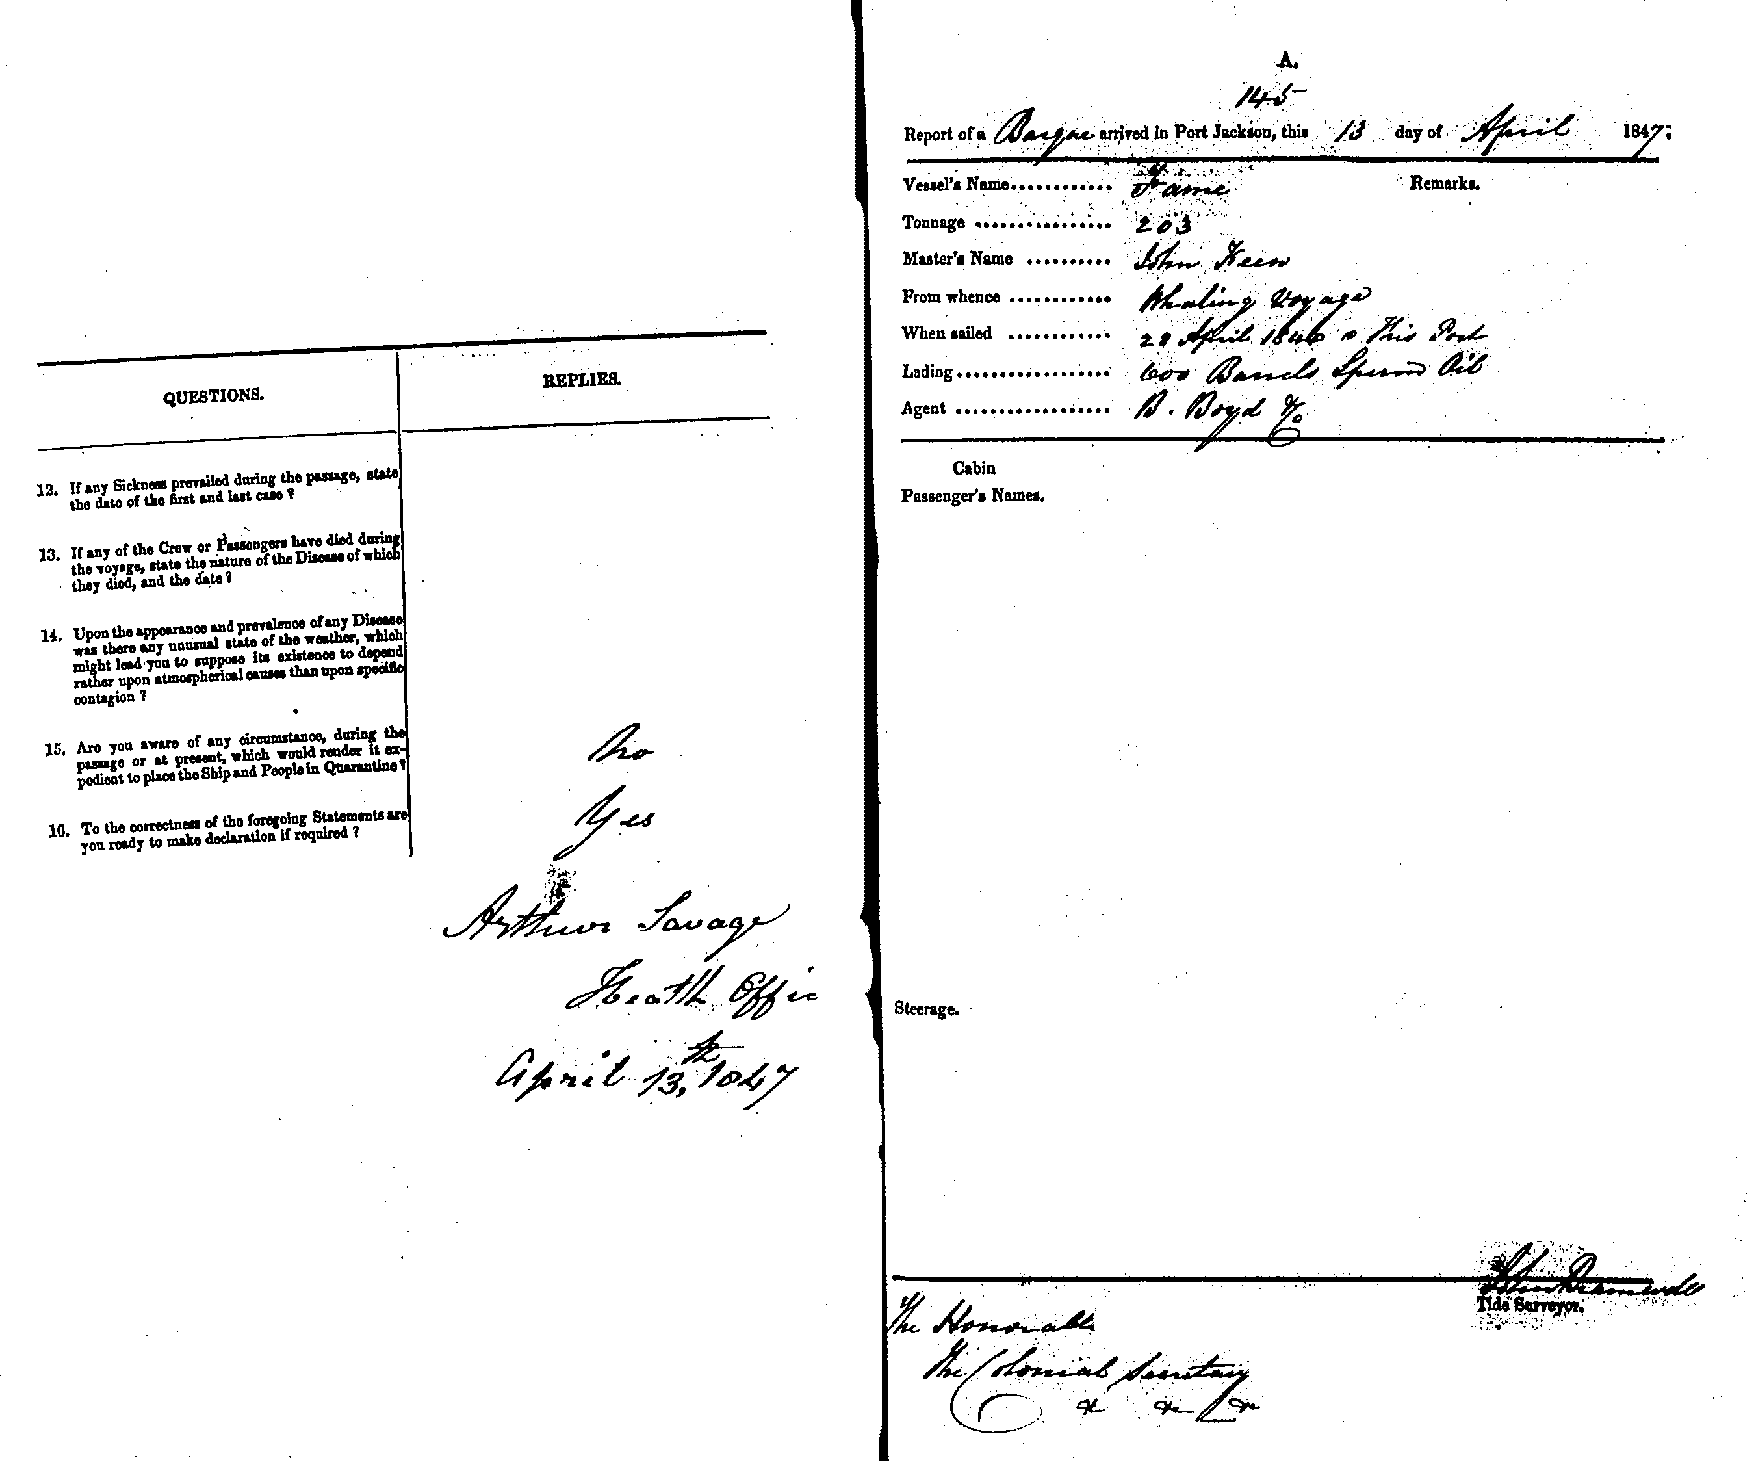 QUESTIONS.
REPLIES.
12. If any Sickness prevailed during the passage, state
the date of the first and last case ?
13. If any of the Crew or Passengers have died during
the voyage, state the nature of the Disease of which
they died, and the date ?
14. Upon the appearance and prevalence of any Disease
was there any unusual state of the weather, which
might lead you to suppose its existence to depend
rather upon atmospherical causes than upon specific
contagion ?
15. Are you aware of any circumstance, during the
passage or at present, which would render it ex-
pedient to place the Ship and People in Quarantine ?
No
16. To the correctness of the foregoing Statements are
you ready to make declaration if required ?
Yes
Arthur Savage
Health Offic
April 13th, 1847
A.
145
Report of a Barque arrived in Port Jackson, this 13 day of April 1847:
Vessel's Name............ Fame
Remarks.
Tonnage ................ 203
Master's Name .......... John Keen
From whence ............ Whaling Voyage
When sailed ............ April 1846 This Port
Lading.................. 600 Barrels Sperm Oil
Agent .................. B. Boyd & Co
Cabin
Passenger's Names.
Steerage.
John Bramwell
Tide Surveyor.
The Honorable
The Colonial Secretary
&c &c &c